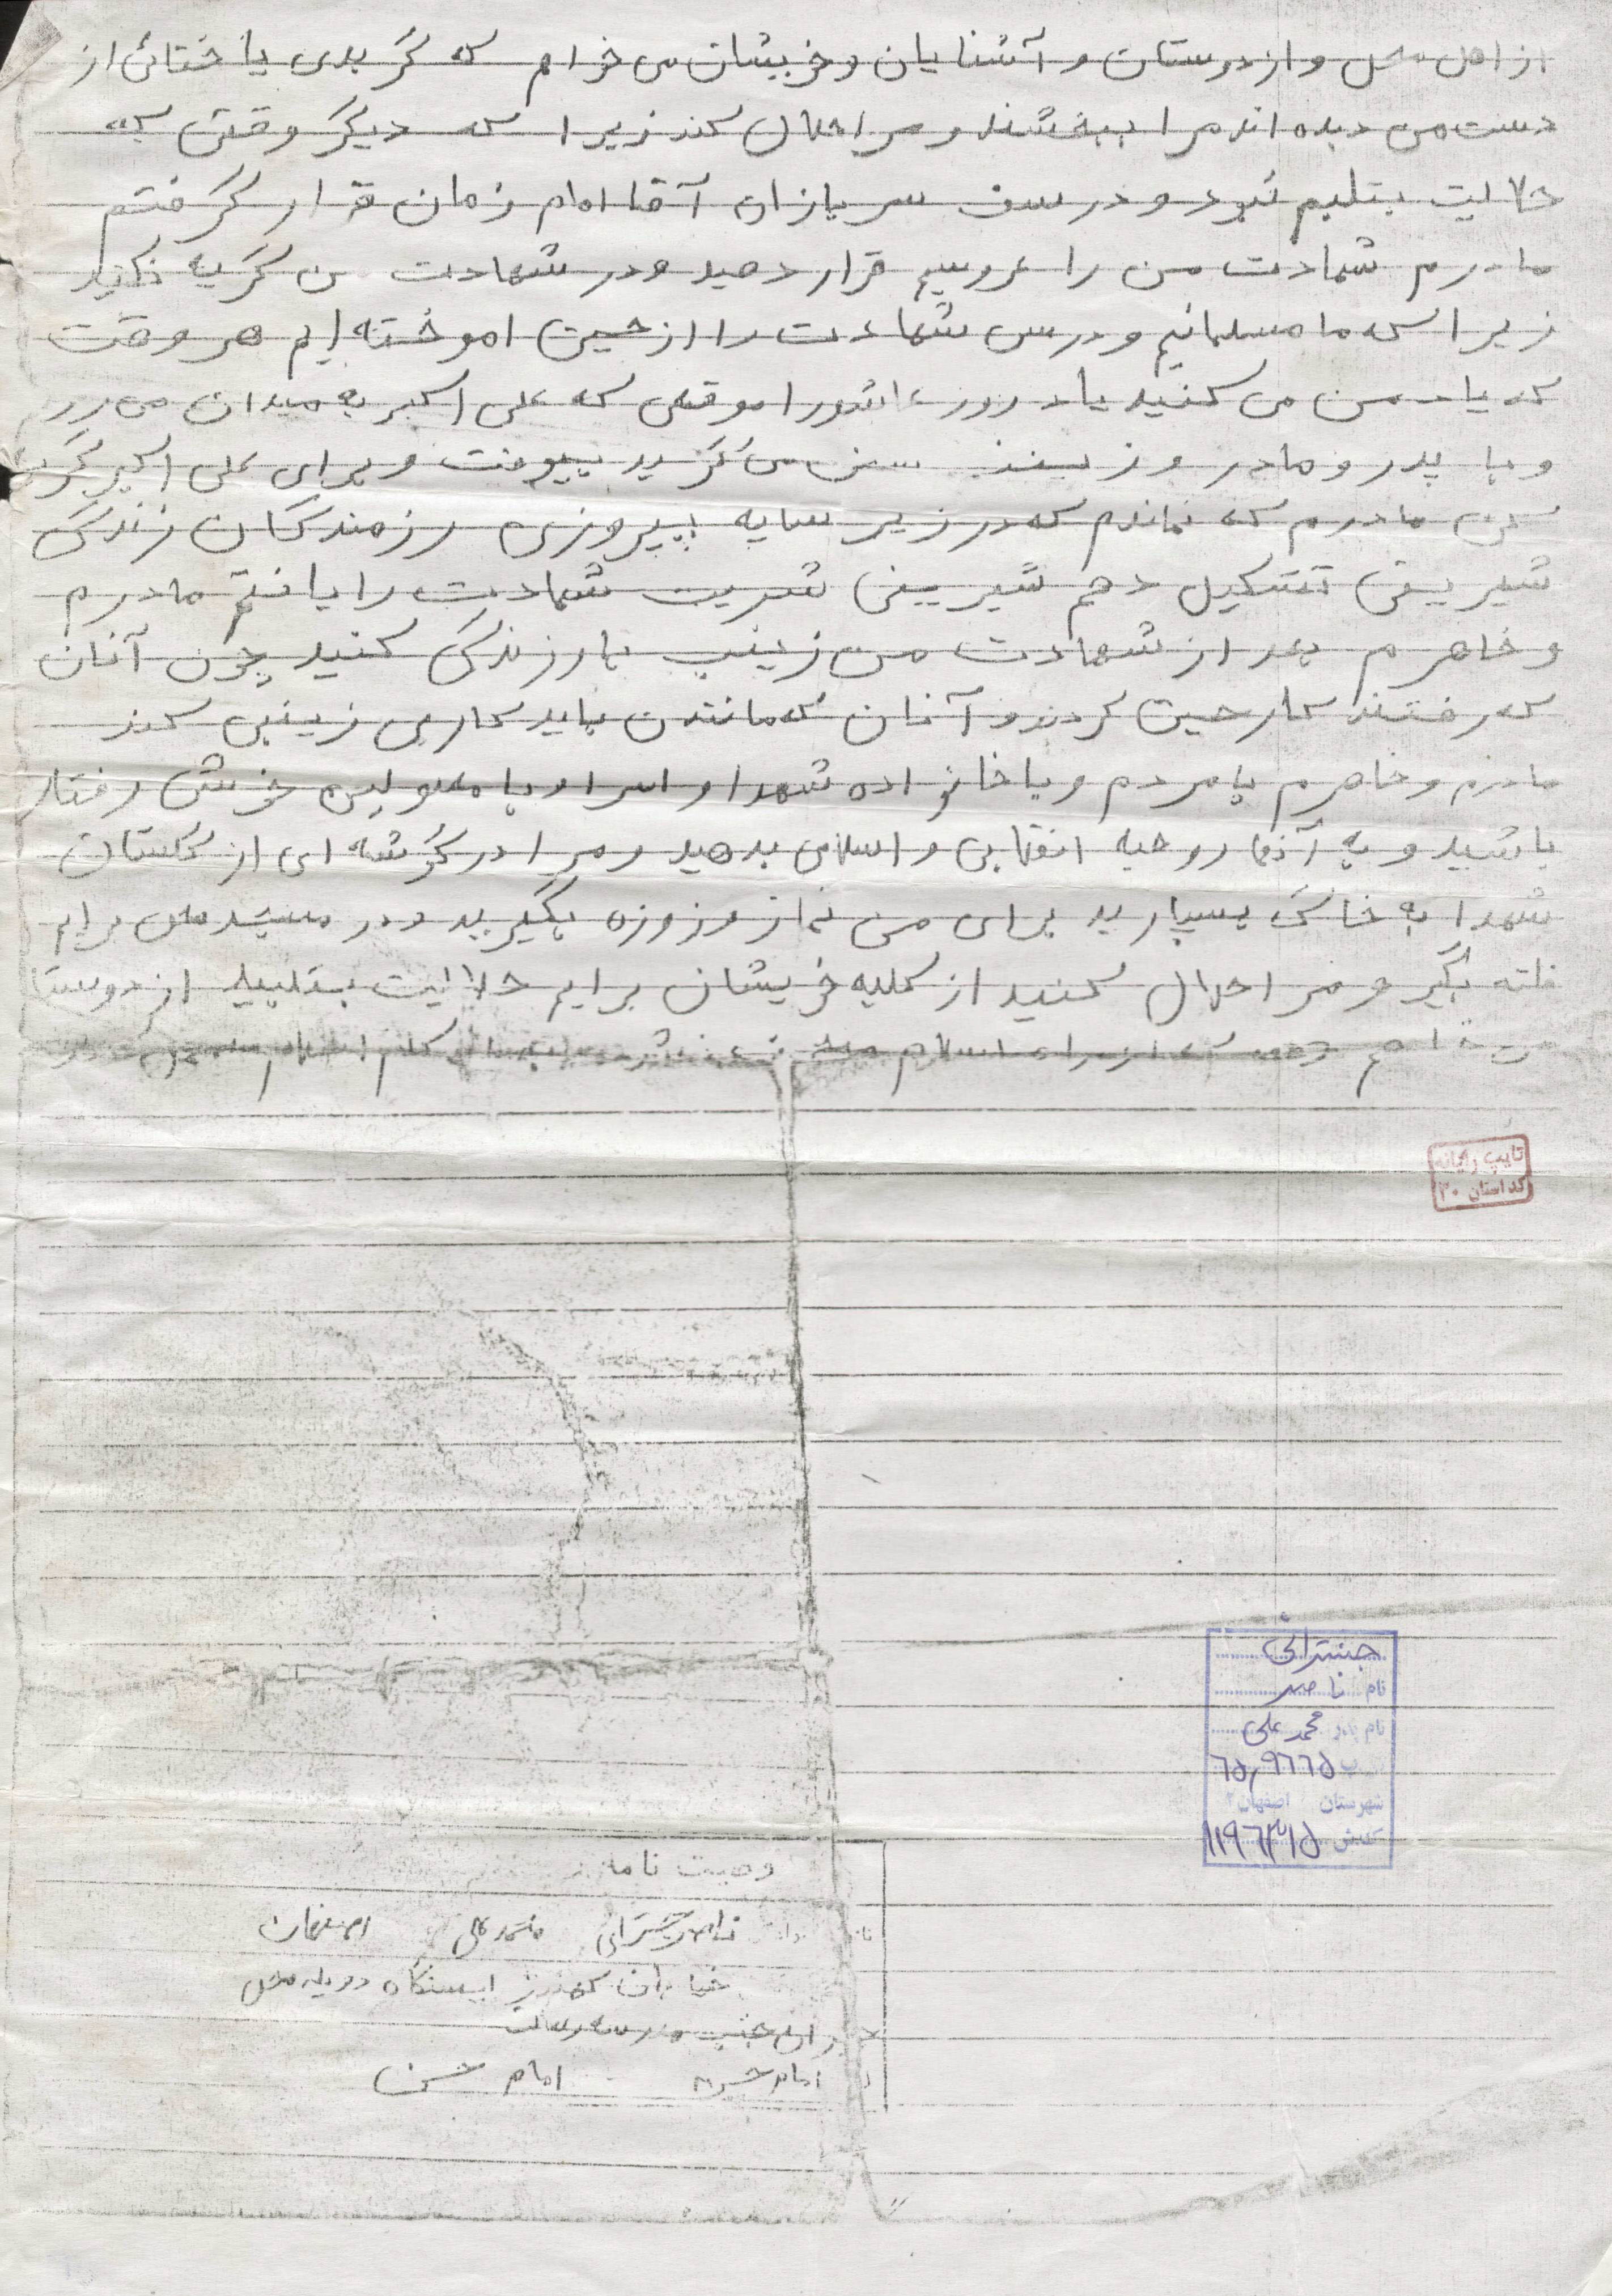 از اهل محل و از دوستان و آشنایان و خویشان می خوام که گر بدی یا ختائی از
دست من دیده اند مرا ببخشند و مرا حلال کنند زیرا که دیگر وقتی که
حلالیت بتلبم نبود و در سف سربازان آقا امام زمان قرار گرفتم
مادرم شهادت من را عروسیم قرار دهید و در شهادت من گریه نکنید
زیرا که ما مسلمانیم و درس شهادت را از حسین اموخته ایم هر وقت
که یاد من می کنید یاد روز عاشورا موقعی که علی اکبر به میدان می رود
و با پدر و مادر و زینب سخن می گرید و برای علی اکبر گریه
کن مادرم که نماندم که در زیر سایه پیروزی رزمندگان زندگی
شیرینی تشکیل دهم شیرینی شربت شهادت را یافتم مادرم
و خاهرم بعد از شهادت من زینب بار زندگی کنید چون آنان
که رفتند کار حسین کردند و آنان که ماندن باید کاری زینبی کنند
مادرم و خاهرم با مردم و با خانواده شهدا و اسرا و با معلولین خوش رفتار
باشید و به آنها روحیه انقلابی و اسلامی بدهید و مرا در گوشه ای از گلستان
شهدا به خاک بسپارید برای من نماز و روزه بگیرید و در مسجد محل برایم
فاته بگیر و مرا حلال کنید از کلیه خویشان برایم حلالیت بتلبید از دوستا
تایپ رایانه
کد استان ۲۰
جنترائی
نام ناصر
نام پدر محمد علی
۶۵٫۹۶۶۵
شهرستان اصفهان ۲
کدش ۱۱۹۶۳۱۵
وصیت نامه
ناصر جنترائی محمد علی اصفهان
خیابان کهندژ ایستگاه محل
جنب مدرسه رسالت
امام حسن امام حسن